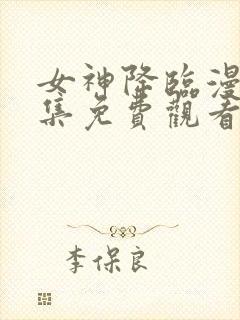 女神降臨漫
集免費觀看
李保良